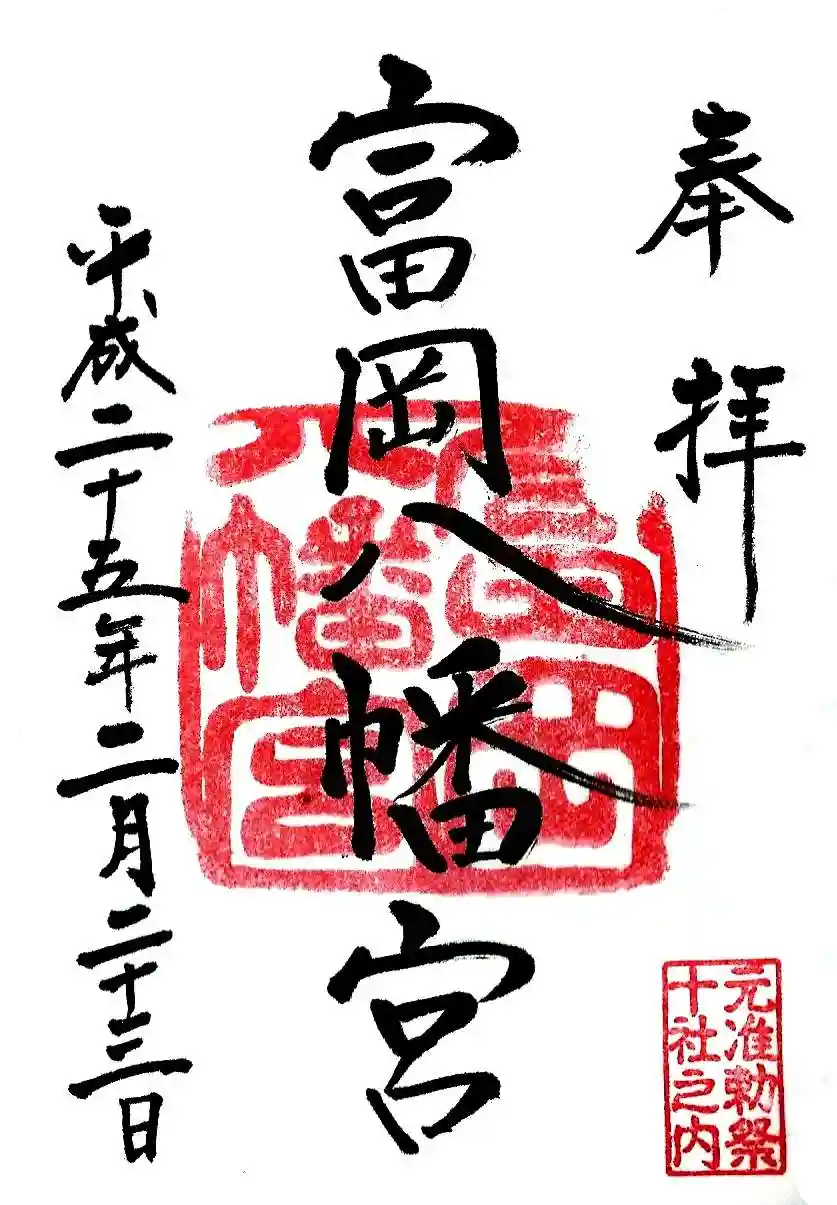 奉拝
富岡八幡宮
富岡八幡宮
平成二十五年二月二十三日
元准勅祭
十社之内